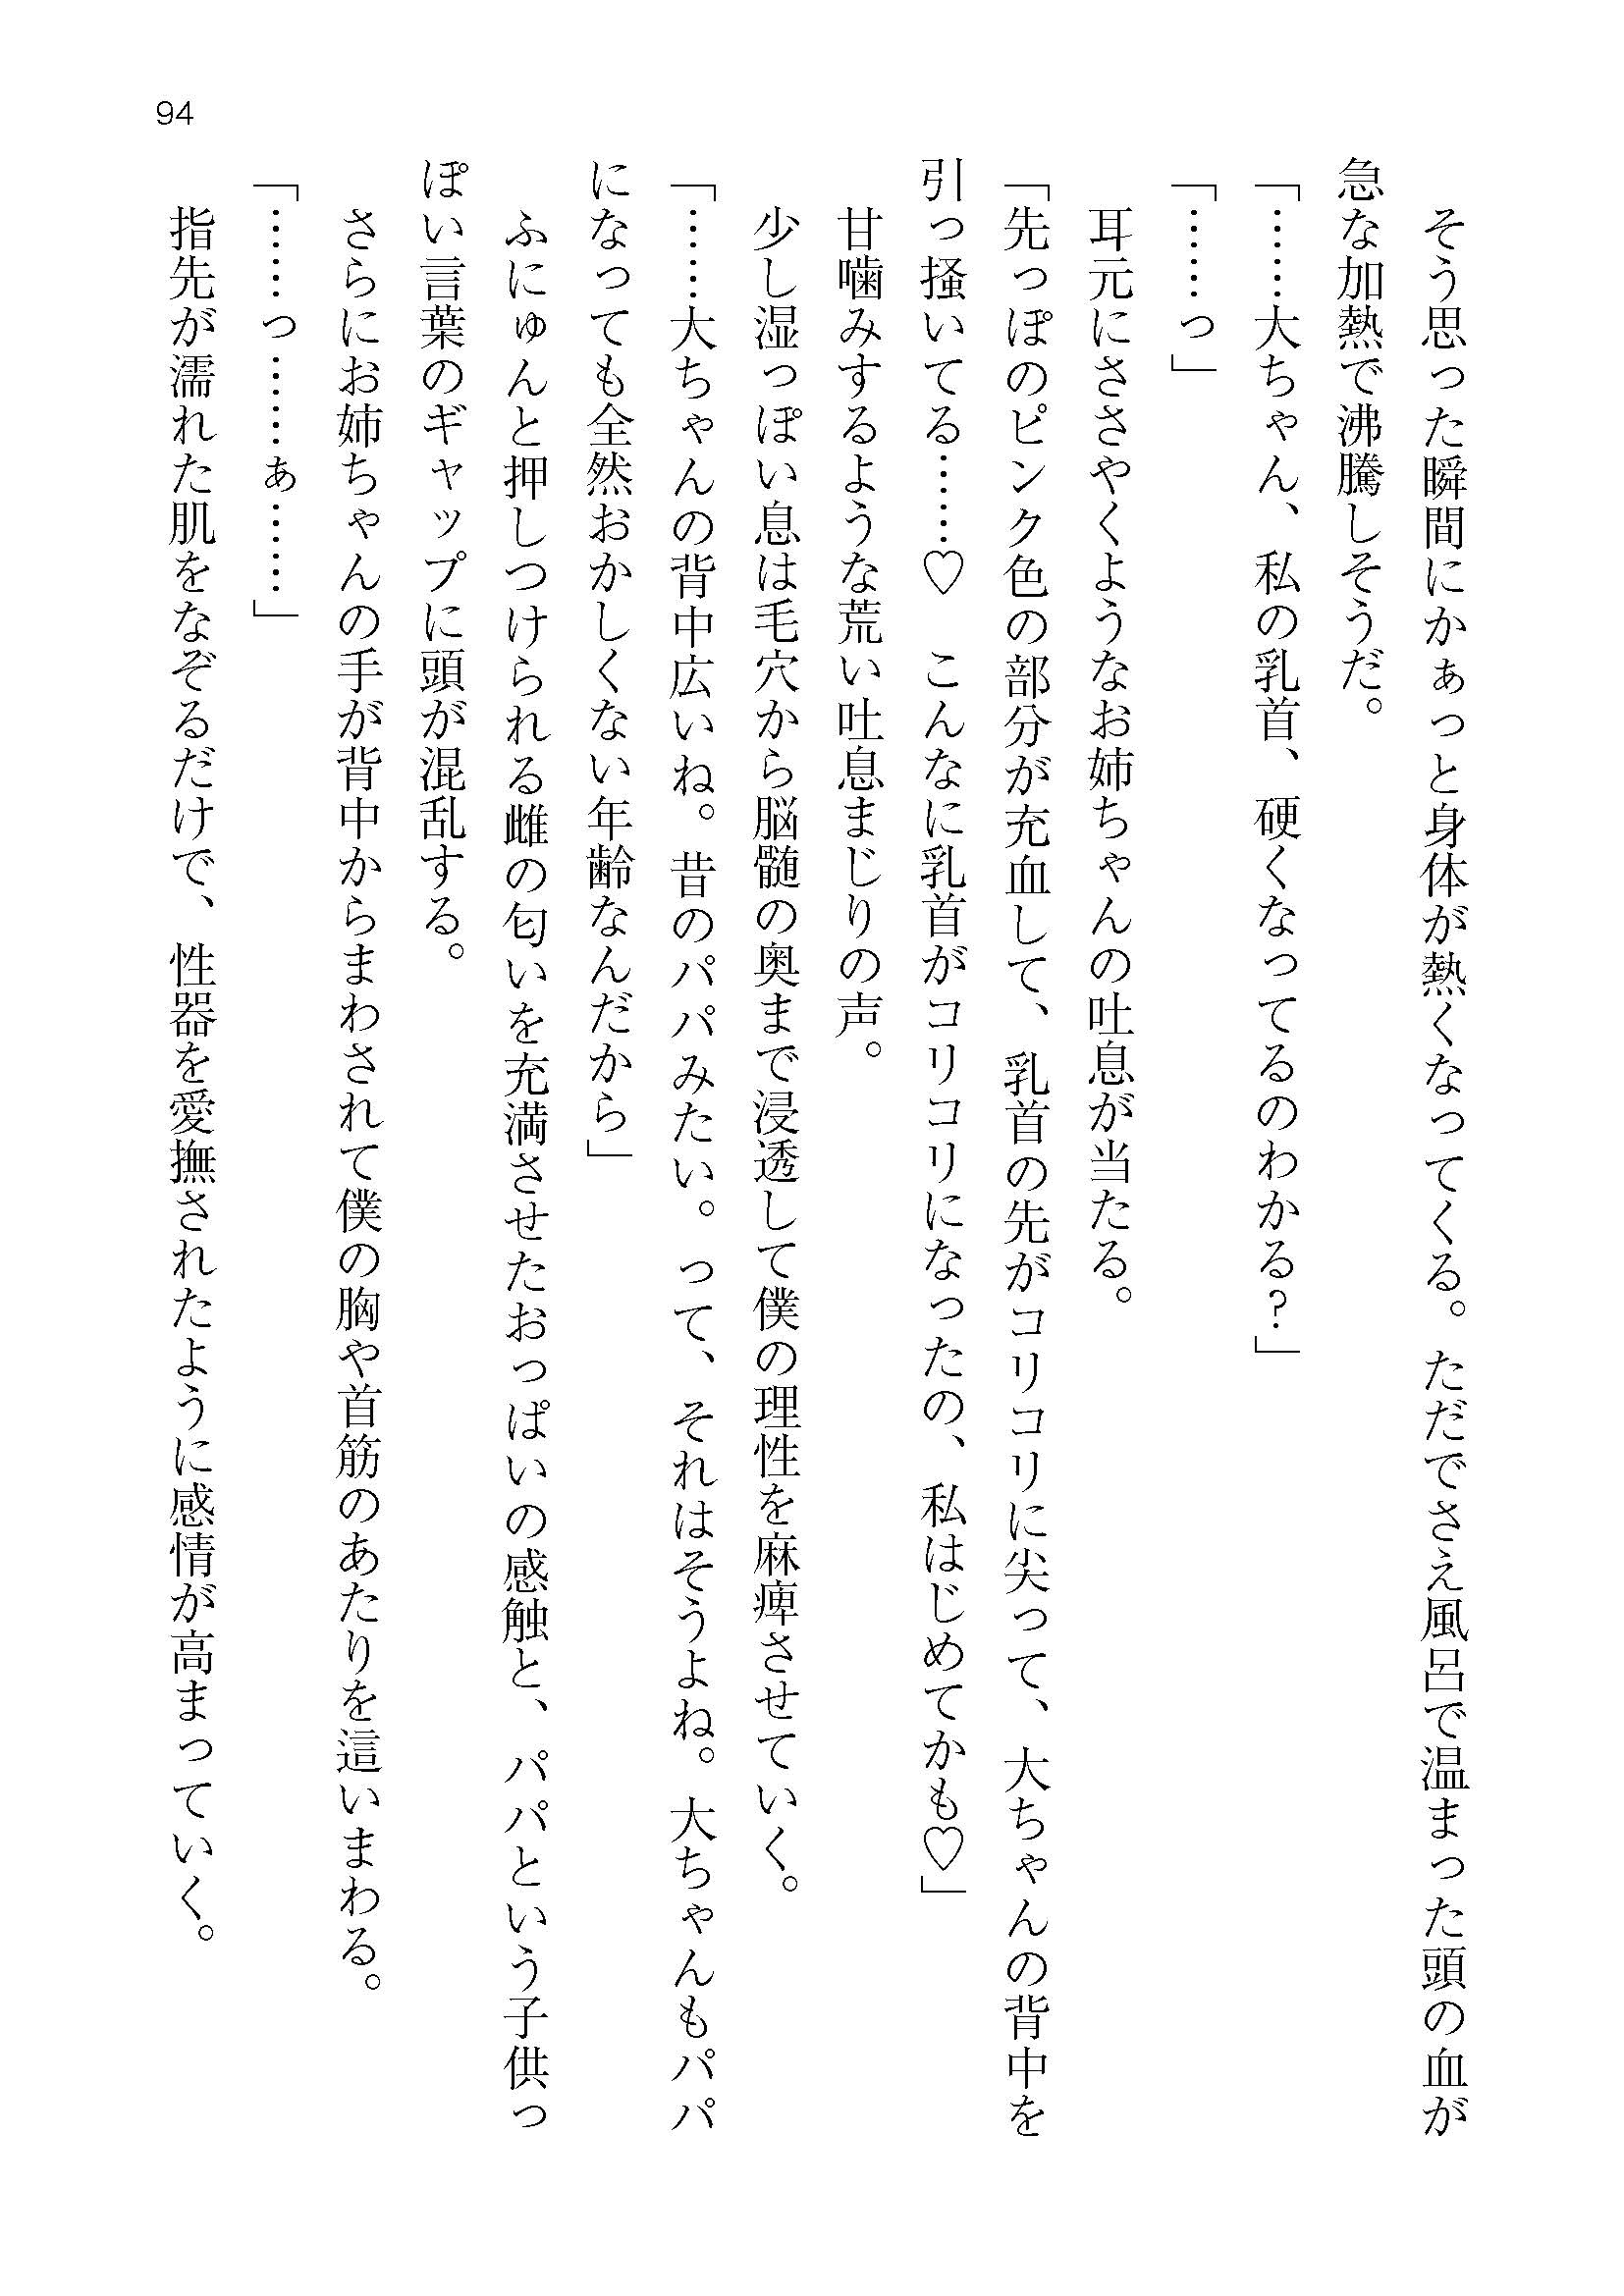 94
そう思った瞬間にかぁっと身体が熱くなってくる。ただでさえ風呂で温まった頭の血が
急な加熱で沸騰しそうだ。
「……大ちゃん、私の乳首、硬くなってるのわかる?」
「……っ」
耳元にささやくようなお姉ちゃんの吐息が当たる。
「先っぽのピンク色の部分が充血して、乳首の先がコリコリに尖って、大ちゃんの背中を
引っ掻いてる……♡　こんなに乳首がコリコリになったの、私はじめてかも♡」
甘噛みするような荒い吐息まじりの声。
少し湿っぽい息は毛穴から脳髄の奥まで浸透して僕の理性を麻痺させていく。
「……大ちゃんの背中広いね。昔のパパみたい。って、それはそうよね。大ちゃんもパパ
になっても全然おかしくない年齢なんだから」
ふにゅんと押しつけられる雌の匂いを充満させたおっぱいの感触と、パパという子供っ
ぽい言葉のギャップに頭が混乱する。
さらにお姉ちゃんの手が背中からまわされて僕の胸や首筋のあたりを這いまわる。
「……っ……ぁ……」
指先が濡れた肌をなぞるだけで、性器を愛撫されたように感情が高まっていく。